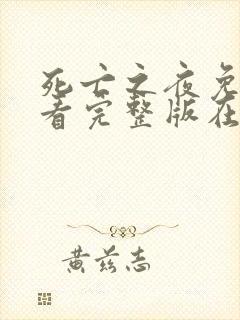 死亡之夜免
看完整版在
黄兹志